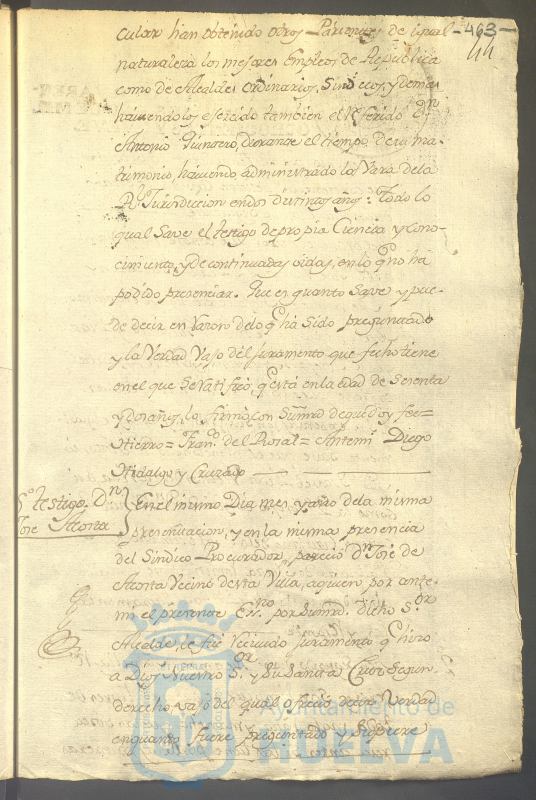 -463-
44
cular han obtenido otros Parientes de igual
naturaleza los mejores Empleos de Republica
como de Alcaldes Ordinarios, Sindicos, y demas
haviendolos exercido tambien el Referido Dn
Antonio Quintero, durante el tiempo de su ma-
trimonio, haviendo administrado la Vara de la
Rl Jurisdiccion en dos distintos años: Todo lo
qual Save el testigo de propia Ciencia y Cono-
cimiento, y de continuadas oidas, en lo q no ha
podido presenciar. Que es quanto Save y pue-
de decir en razon de lo q ha sido preguntado
y la Verdad vajo del juramento que fecho tiene
en el que se ratificó, q está en la edad de Sesenta
y dos años, lo firmó con Su md de que doy fee=
Hierro= Franco del Rosal= Antemi Diego
Hidalgo y Cruzado
5o testigo Dn
Jose Acosta
En el mismo Dia mes y año de la misma
presentacion, y en la misma presencia
del Sindico Procurador, parecio Dn José de
Acosta Vecino desta Villa, a quien por ante-
mi el presente Esno por Su md dicho Sor
Alcalde, le fué recivido juramento q hizo
a Dios Nuestro Sor y Su Santa Cruz segun
derecho, vajo del qual ofreció decir Verdad
en quanto fuere preguntado y Supiere
Ayuntamiento de
HUELVA